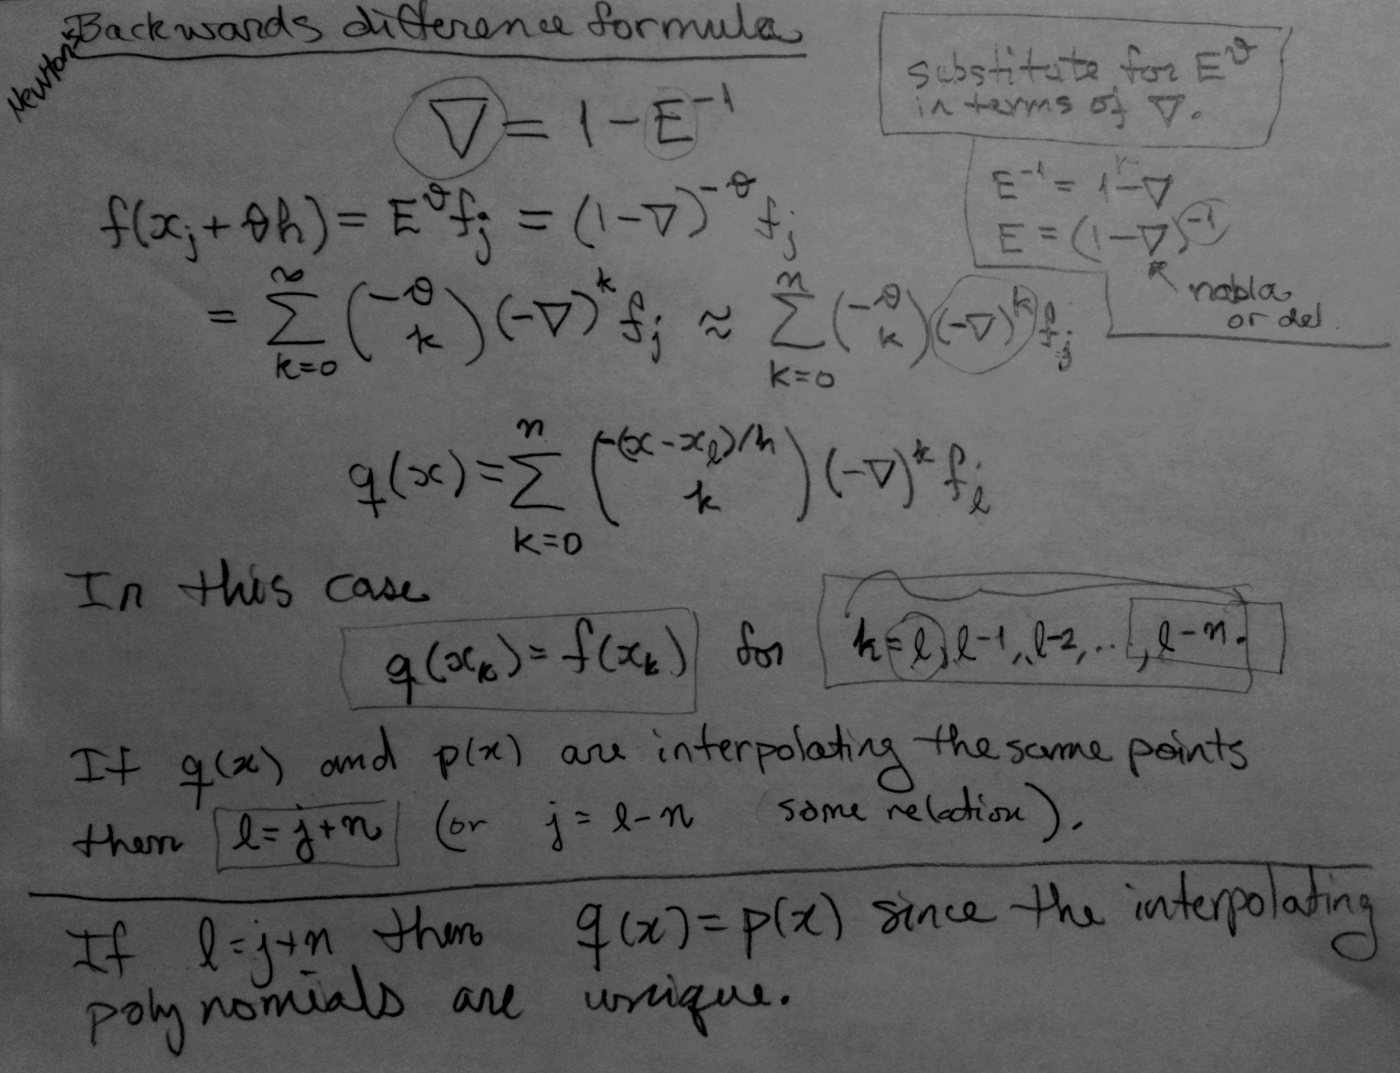 Newtons
Backwards difference formula
∇ = 1 − E⁻¹
substitute for E^θ
in terms of ∇.
E⁻¹ = 1 − ∇
E = (1 − ∇)⁻¹
nabla
or del.
f(x_j + θh) = E^θ f_j = (1 − ∇)^{−θ} f_j
= ∑_{k=0}^{∞} (−θ k) (−∇)^k f_j ≈ ∑_{k=0}^{n} (−θ k) (−∇)^k f_j
q(x) = ∑_{k=0}^{n} (−(x − x_l)/h k) (−∇)^k f_l
In this case
q(x_k) = f(x_k) for k = l, l−1, l−2, ..., l−n.
If q(x) and p(x) are interpolating the same points
then l = j + n (or j = l − n same relation).
If l = j + n then q(x) = p(x) since the interpolating
polynomials are unique.